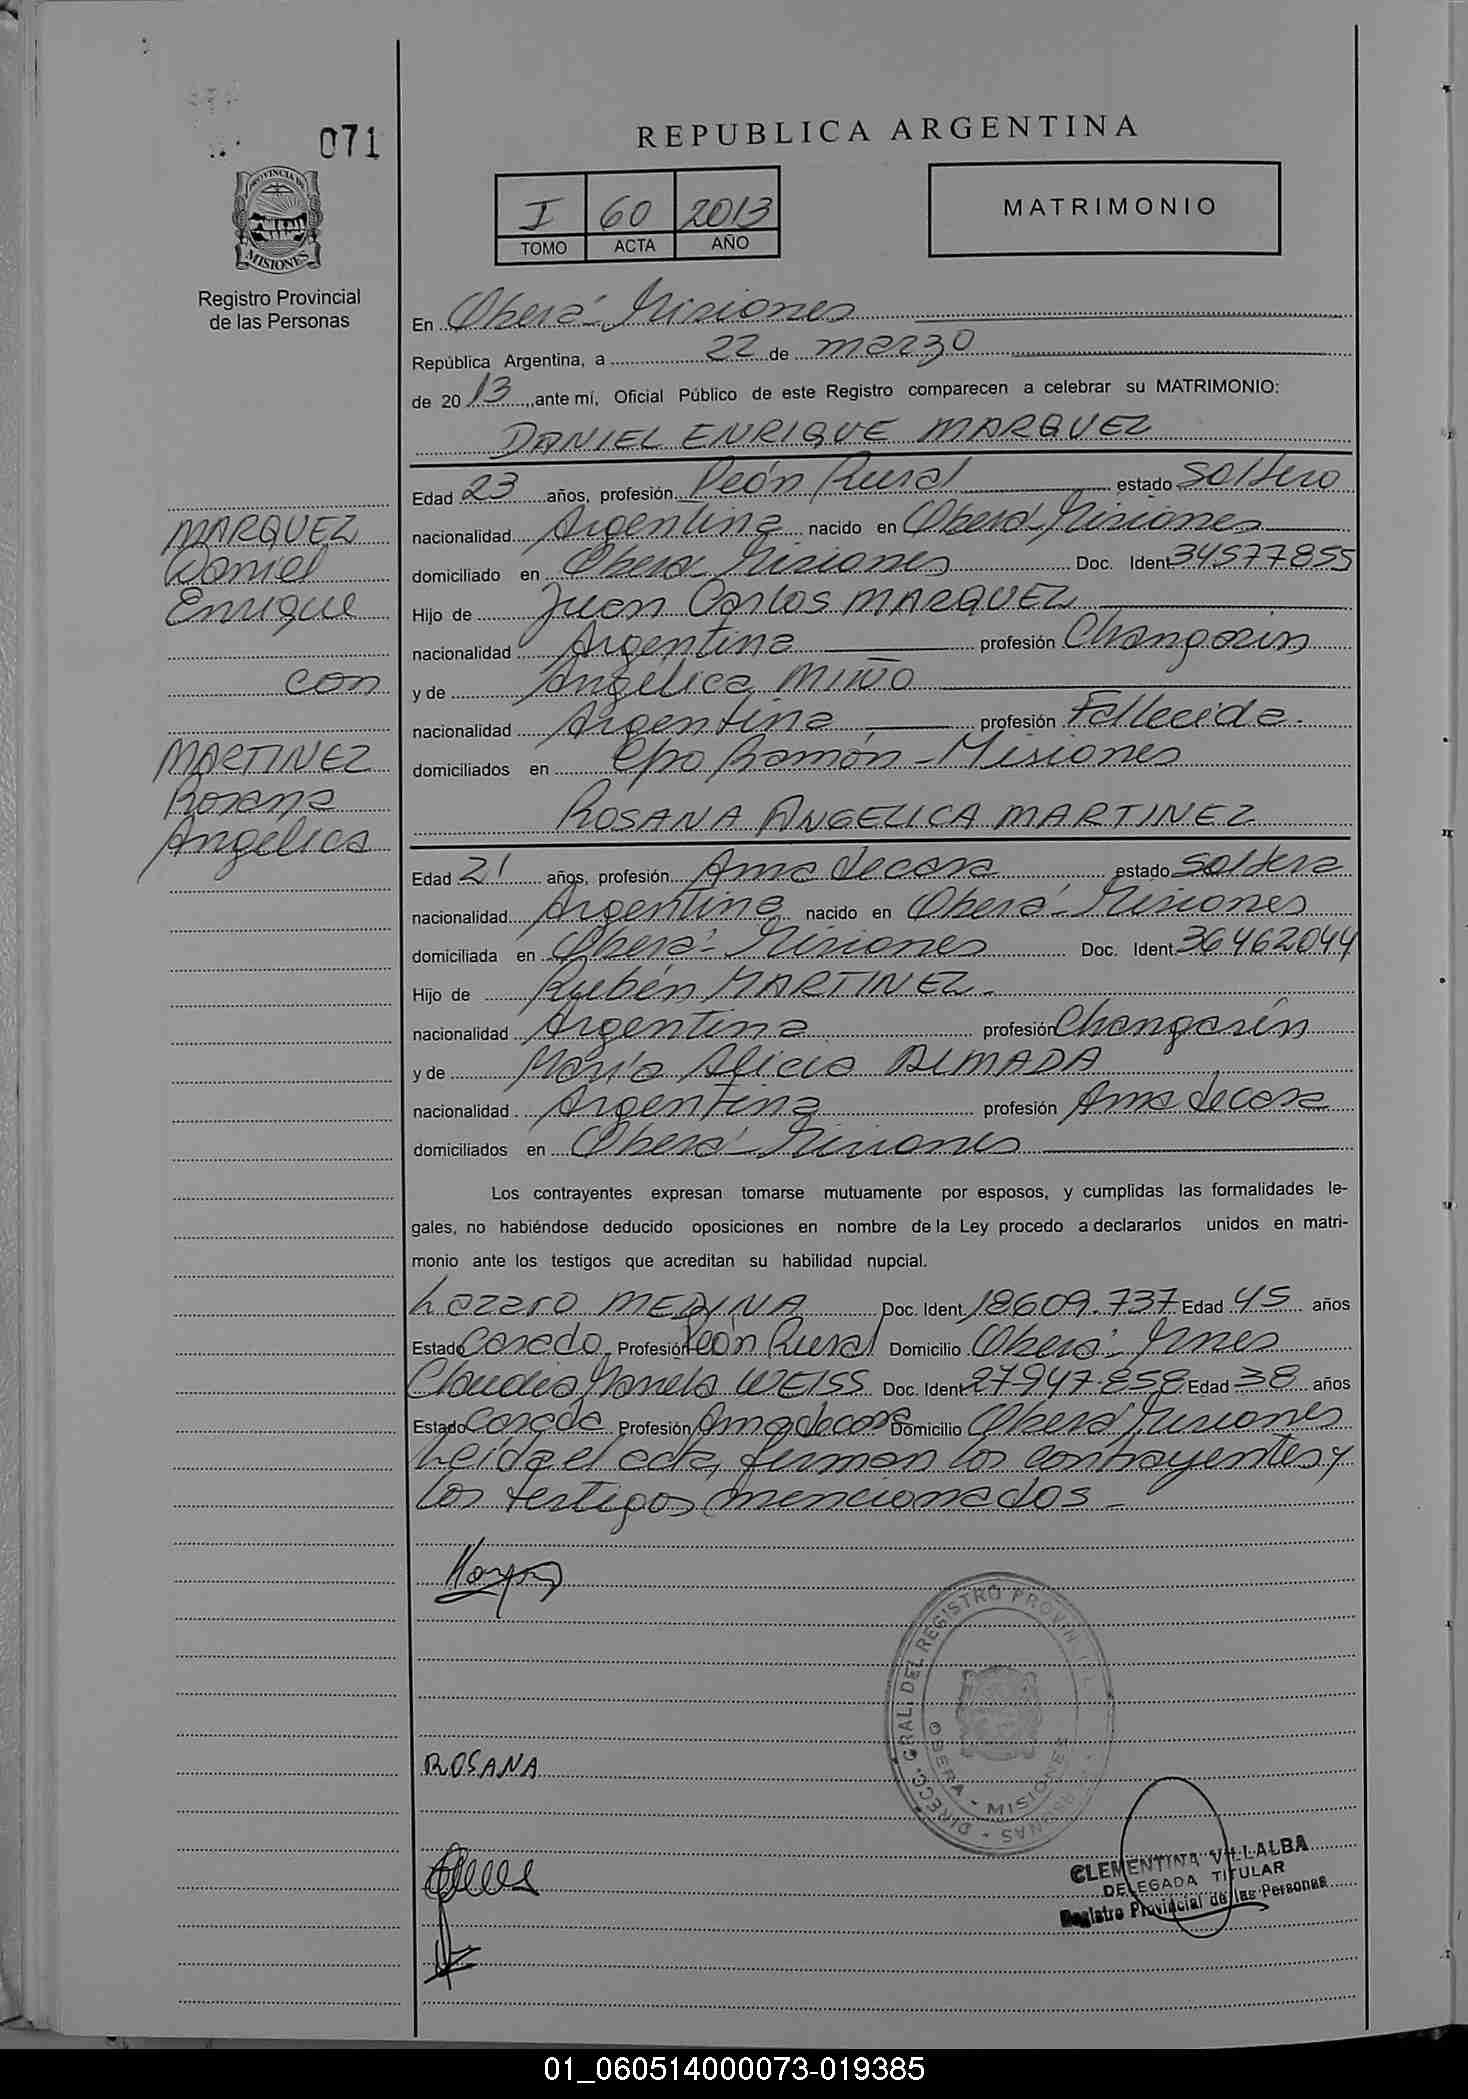 071
PROVINCIA DE
MISIONES
Registro Provincial
de las Personas
REPUBLICA ARGENTINA
I 60 2013
TOMO ACTA AÑO
MATRIMONIO
En Oberá - Misiones
República Argentina, a 22 de marzo
de 2013, ante mí, Oficial Público de este Registro comparecen a celebrar su MATRIMONIO:
DANIEL ENRIQUE MARQUEZ
Edad 23 años, profesión Peón Rural estado soltero
nacionalidad Argentina nacido en Oberá Misiones
domiciliado en Oberá Misiones Doc. Ident 34577855
Hijo de Juan Carlos MARQUEZ
nacionalidad Argentina profesión Changarin
y de Angélica MIÑO
nacionalidad Argentina profesión Fallecida.
domiciliados en Cpo Ramón - Misiones
ROSANA ANGELICA MARTINEZ
Edad 21 años, profesión Ama de casa estado soltera
nacionalidad Argentina nacido en Oberá - Misiones
domiciliada en Oberá - Misiones Doc. Ident. 36462044
Hijo de Rubén MARTINEZ -
nacionalidad Argentina profesión Changarín
y de María Alicia ALMADA
nacionalidad Argentina profesión Ama de casa
domiciliados en Oberá - Misiones
Los contrayentes expresan tomarse mutuamente por esposos, y cumplidas las formalidades le-
gales, no habiéndose deducido oposiciones en nombre de la Ley procedo a declararlos unidos en matri-
monio ante los testigos que acreditan su habilidad nupcial.
Lazaro MEDINA Doc. Ident. 18609.737 Edad 45 años
Estado Casado Profesión Peón Rural Domicilio Oberá - Mnes
Claudia Mariela WEISS Doc. Ident 27947.858 Edad 38 años
Estado Casada Profesión Ama de casa Domicilio Oberá Misiones
Leída el acta, firman los contrayentes y
los testigos mencionados -
MARQUEZ
Daniel
Enrique
con
MARTINEZ
Rosana
Angélica
ROSANA
DIRECC. GRAL. DEL REGISTRO PROVIN
OBERA - MISIONES
CLEMENTINA VILLALBA
DELEGADA TITULAR
Registro Provincial de las Personas
01_060514000073-019385